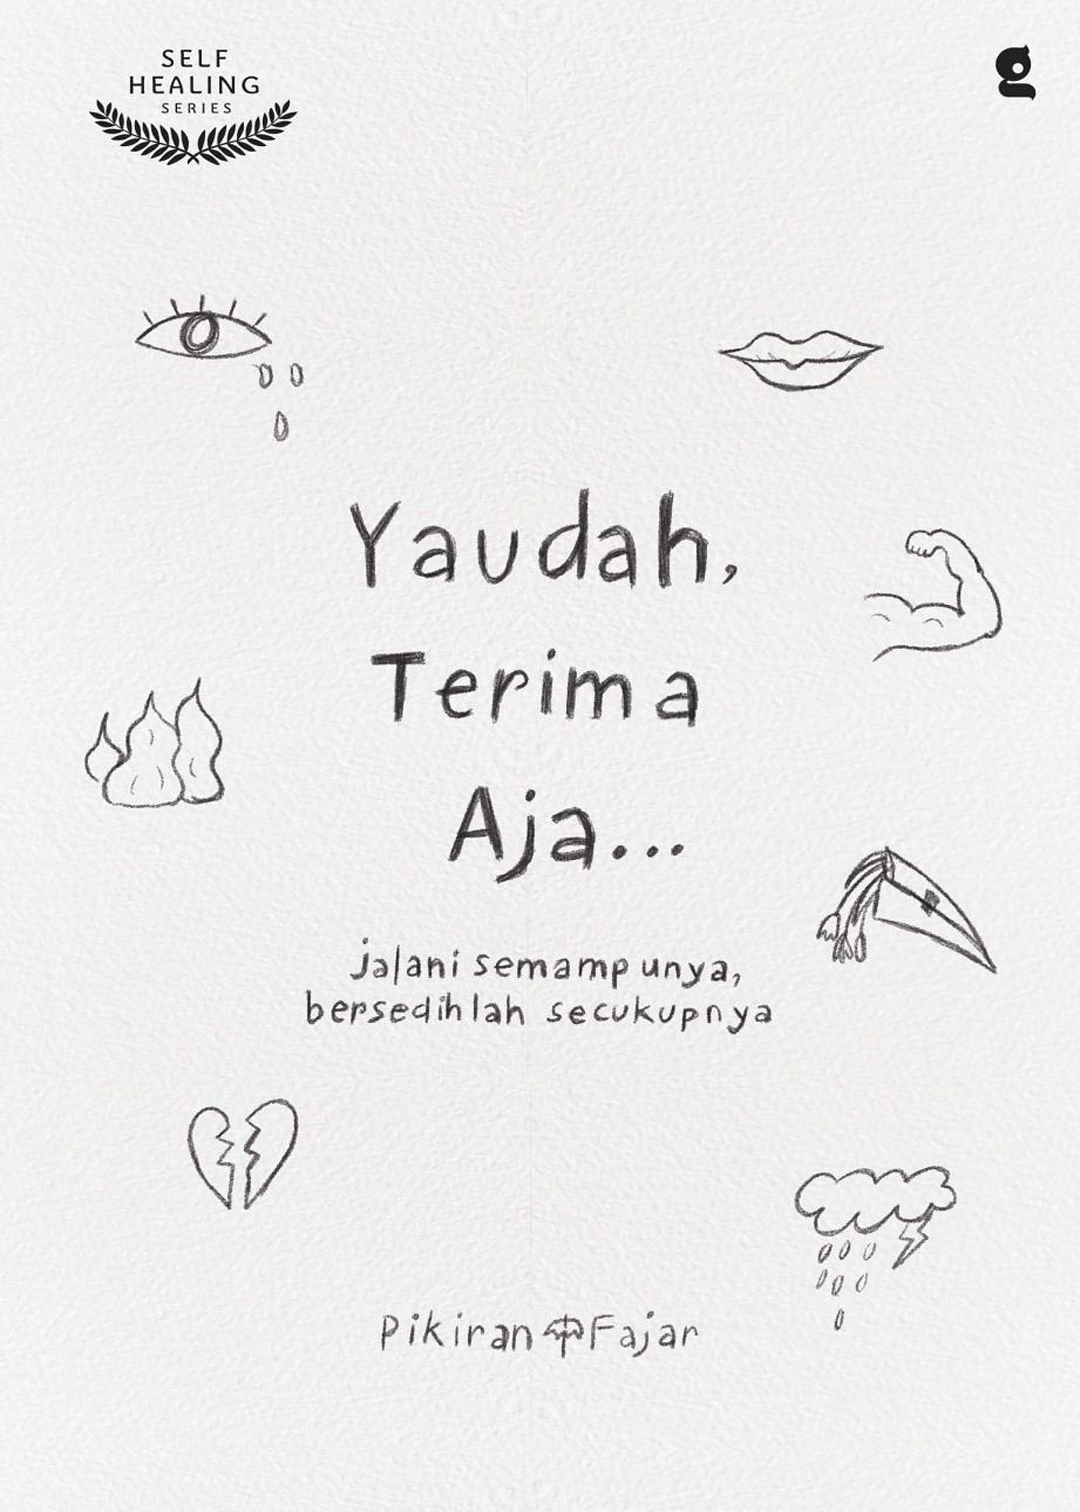 SELF
HEALING
SERIES
g
Yaudah,
Terima
Aja...
jalani semampunya,
bersedihlah secukupnya
Pikiran Fajar